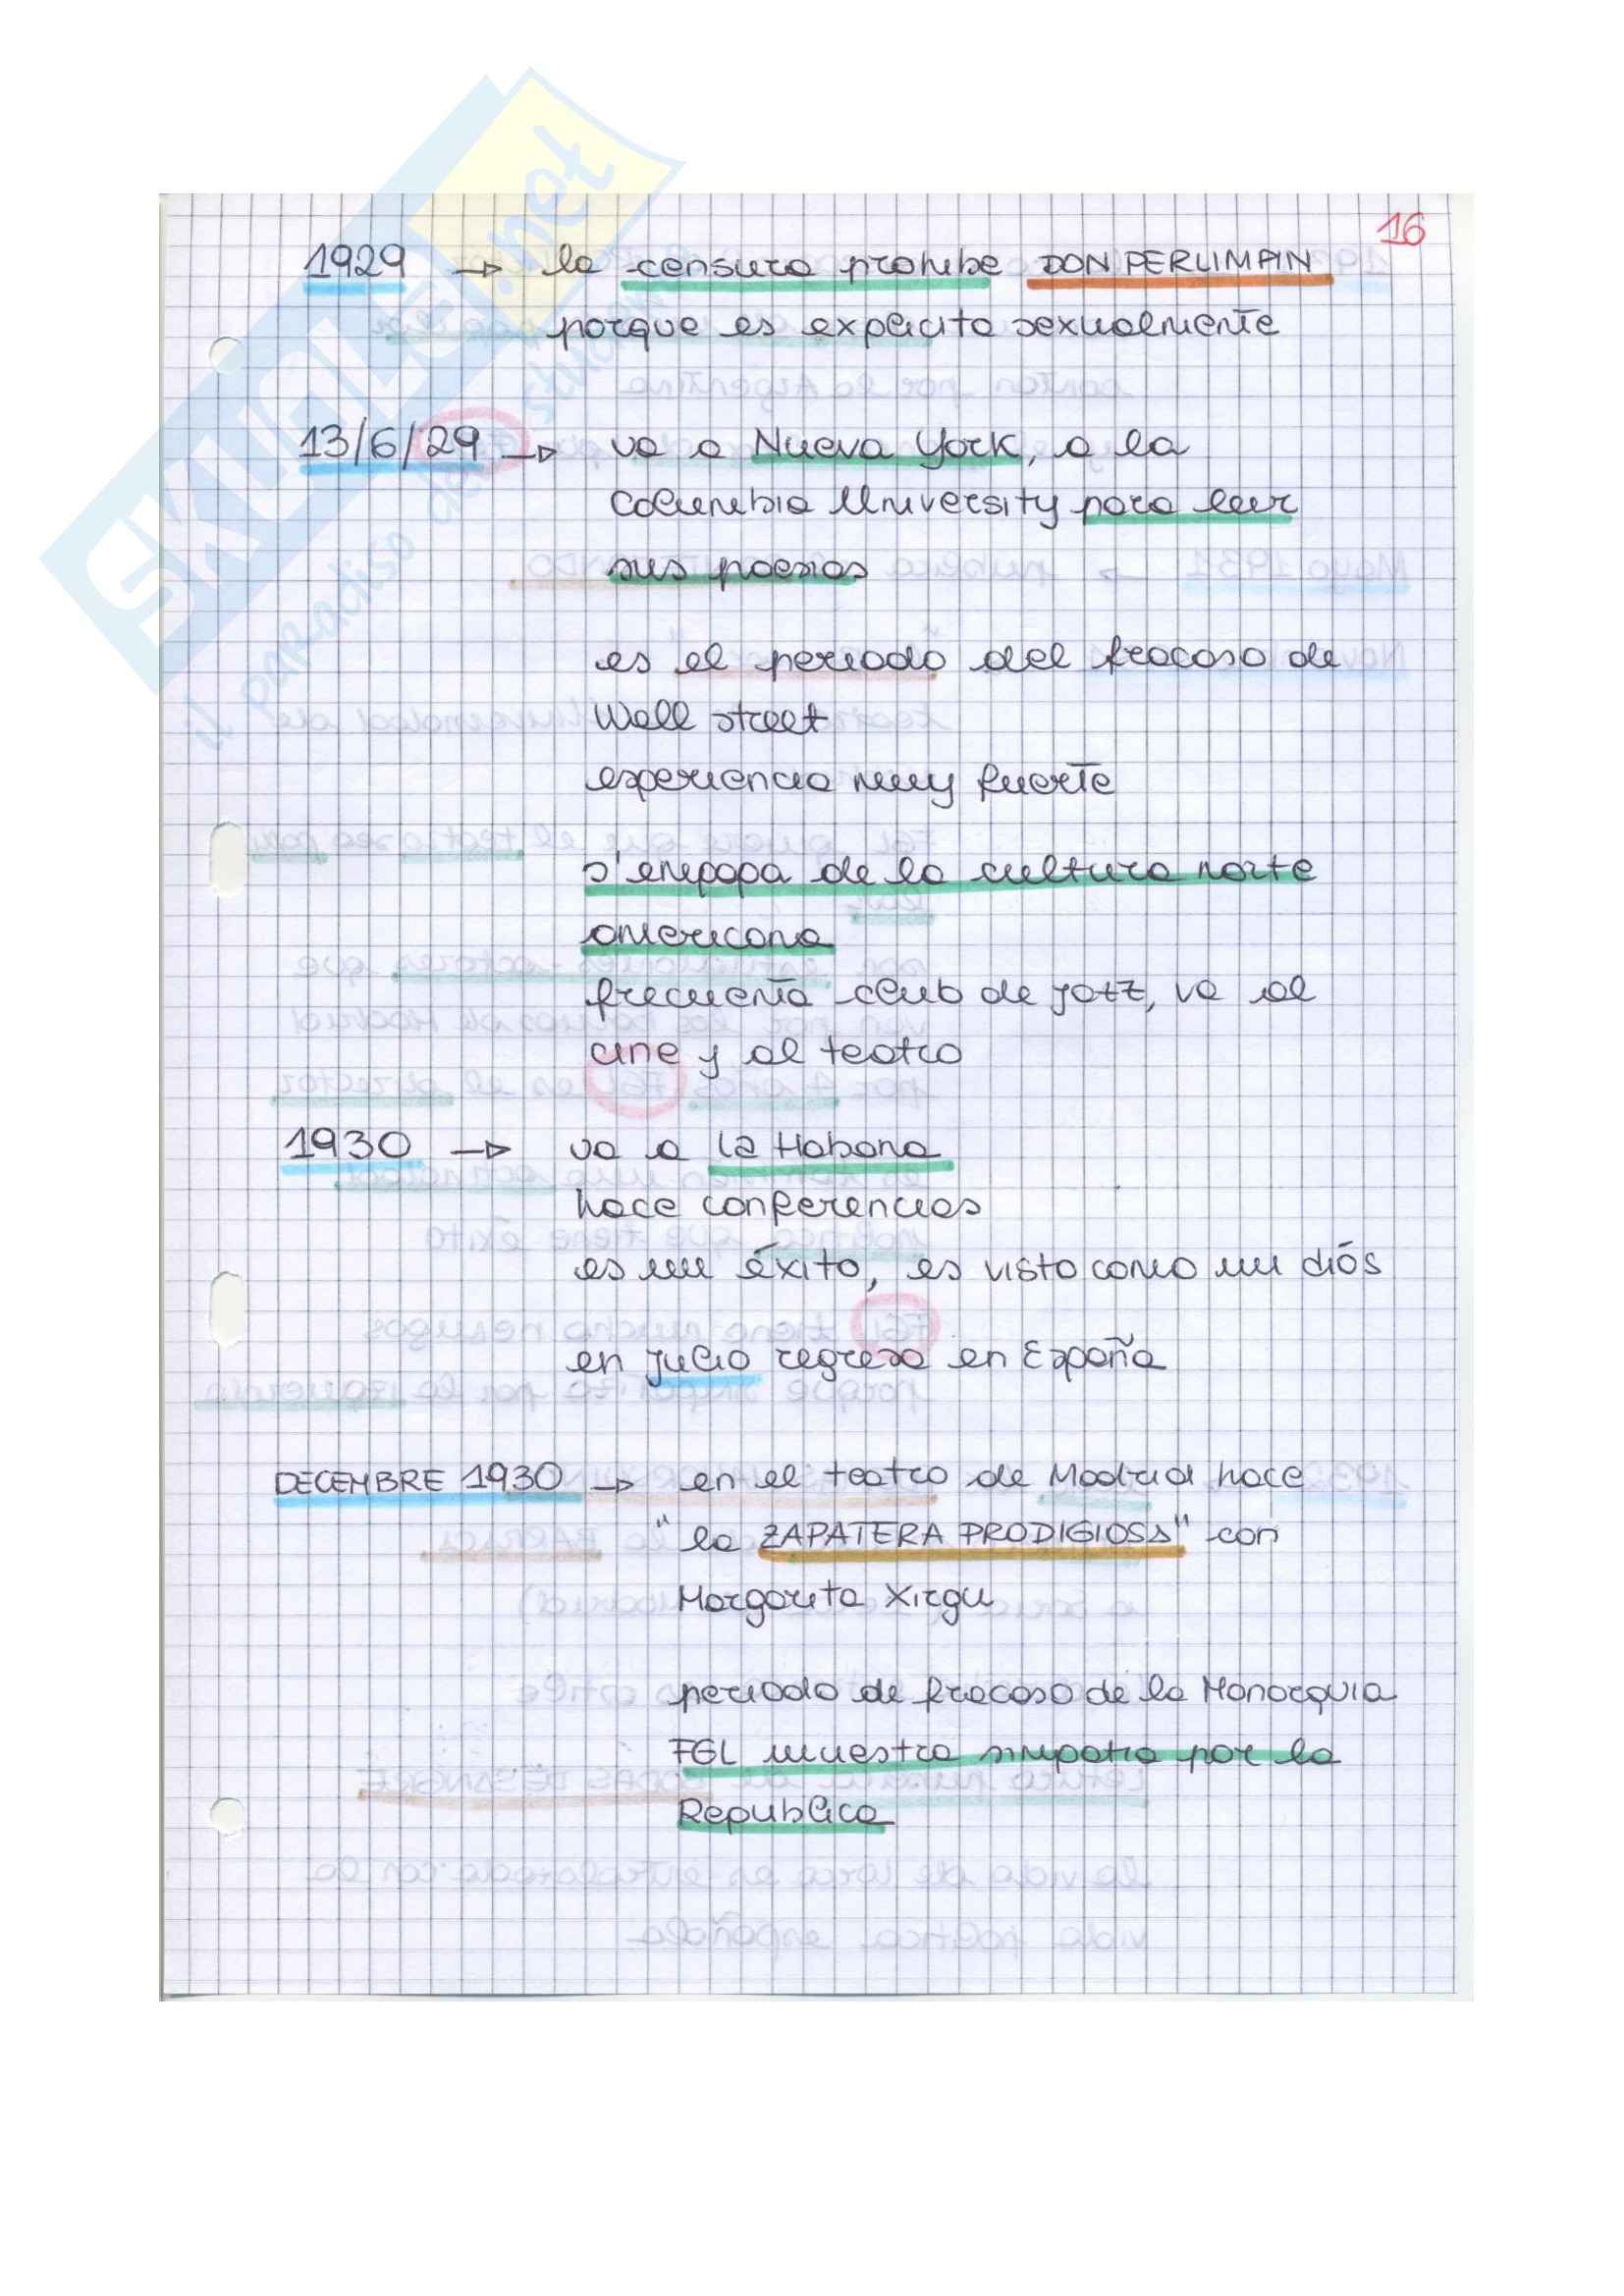 16
1929 → la censura prohibe DON PERLIMPIN
porque es explicito sexualmente
13/6/29 → va a Nueva York, a la
Columbia University para leer
sus poesias
es el periodo del fracaso de
Wall street
experiencia muy fuerte
s'empapa de la cultura norte
americana
frecuenta club de jazz, va al
cine y al teatro
1930 → va a la Habana
hace conferencias
es un éxito, es visto como un diós
en julio regresa en España
DECEMBRE 1930 → en el teatro de Madrid hace
"la ZAPATERA PRODIGIOSA" con
Margarita Xirgu
periodo de fracaso de la Monarquia
FGL muestra simpatia por la
Republica
SKUOLA.net
il paradiso dello studente